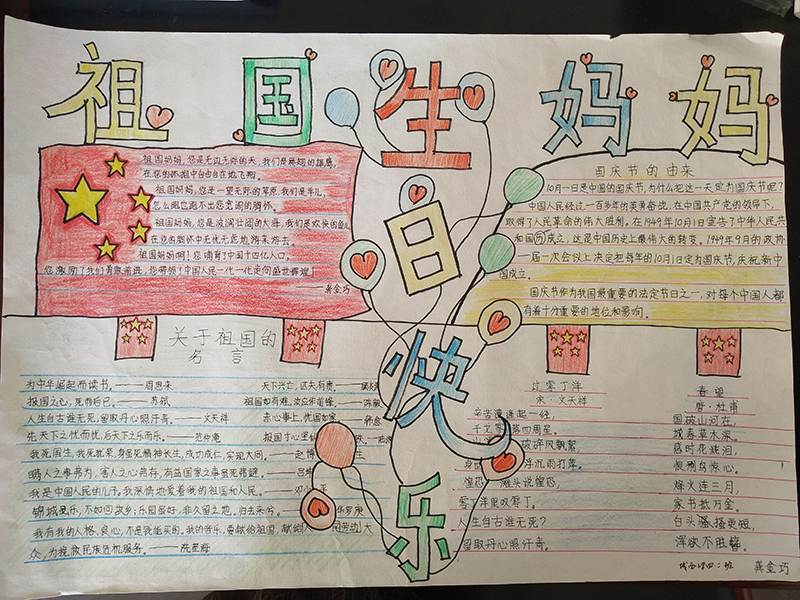 祖国生妈妈
日
快
乐
祖国妈妈，您是无边无际的天，我们是
在您的怀抱中自由自在地飞翔。
祖国妈妈，您是一望无际的草原，我们是羊儿，
怎么跑也跑不出您宽阔的胸怀。
祖国妈妈，您是波澜壮阔的大海，我们是欢快的鱼儿
在您的胸怀中无忧无虑地游来游去。
祖国妈妈啊！您哺育了中国十四亿人口，
您激励了我们勇敢前进，您带领了中国人民一代一代走向盛世辉煌！
——龚金巧
国庆节的由来
10月一日是中国的国庆节，为什么把这一天定为国庆节呢？
中国人民经过一百多年的英勇奋战，在中国共产党的领导下，
取得了人民革命的伟大胜利。在1949年10月1日宣告了中华人民共
和国成立，这是中国历史上最伟大的转变。1949年9月的政协
一届一次会议上决定把每年的10月1日定为国庆节，庆祝新中
国成立。
国庆节作为我国最重要的法定节日之一，对每个中国人都
有着十分重要的地位和影响。
关于祖国的
名言
为中华崛起而读书。——周恩来
天下兴亡，匹夫有责。
报国之心，死而后已。——苏轼
祖国如有难，汝应作前锋。——陈毅
人生自古谁无死，留取丹心照汗青。——文天祥
赤心事上，忧国如家。——韩愈
先天下之忧而忧，后天下之乐而乐。——范仲淹
祖国
我死国生，我死犹荣，身虽死精神长生，成功成仁，实现大同。——赵博
瞒人之事弗为，害人之心弗存，有益国家之事虽死弗避。——吕坤
我是中国人民的儿子。我深情地爱着我的祖国和人民。——邓小平
锦城虽乐，不如回故乡；乐园虽好，非久留之地，归去来兮。——华罗庚
我有我的人格、良心，不是钱能买的。我的音乐，要献给祖国，献给劳动大
众，为挽救民族危机服务。——冼星海
过零丁洋
宋·文天祥
辛苦遭逢起一经，
干戈寥落四周星。
山河破碎风飘絮，
身世浮沉雨打萍。
惶恐滩头说惶恐，
零丁洋里叹零丁。
人生自古谁无死？
留取丹心照汗青。
春望
唐·杜甫
国破山河在，
城春草木深。
感时花溅泪，
恨别鸟惊心。
烽火连三月，
家书抵万金。
白头搔更短，
浑欲不胜簪。
四二班
龚金巧